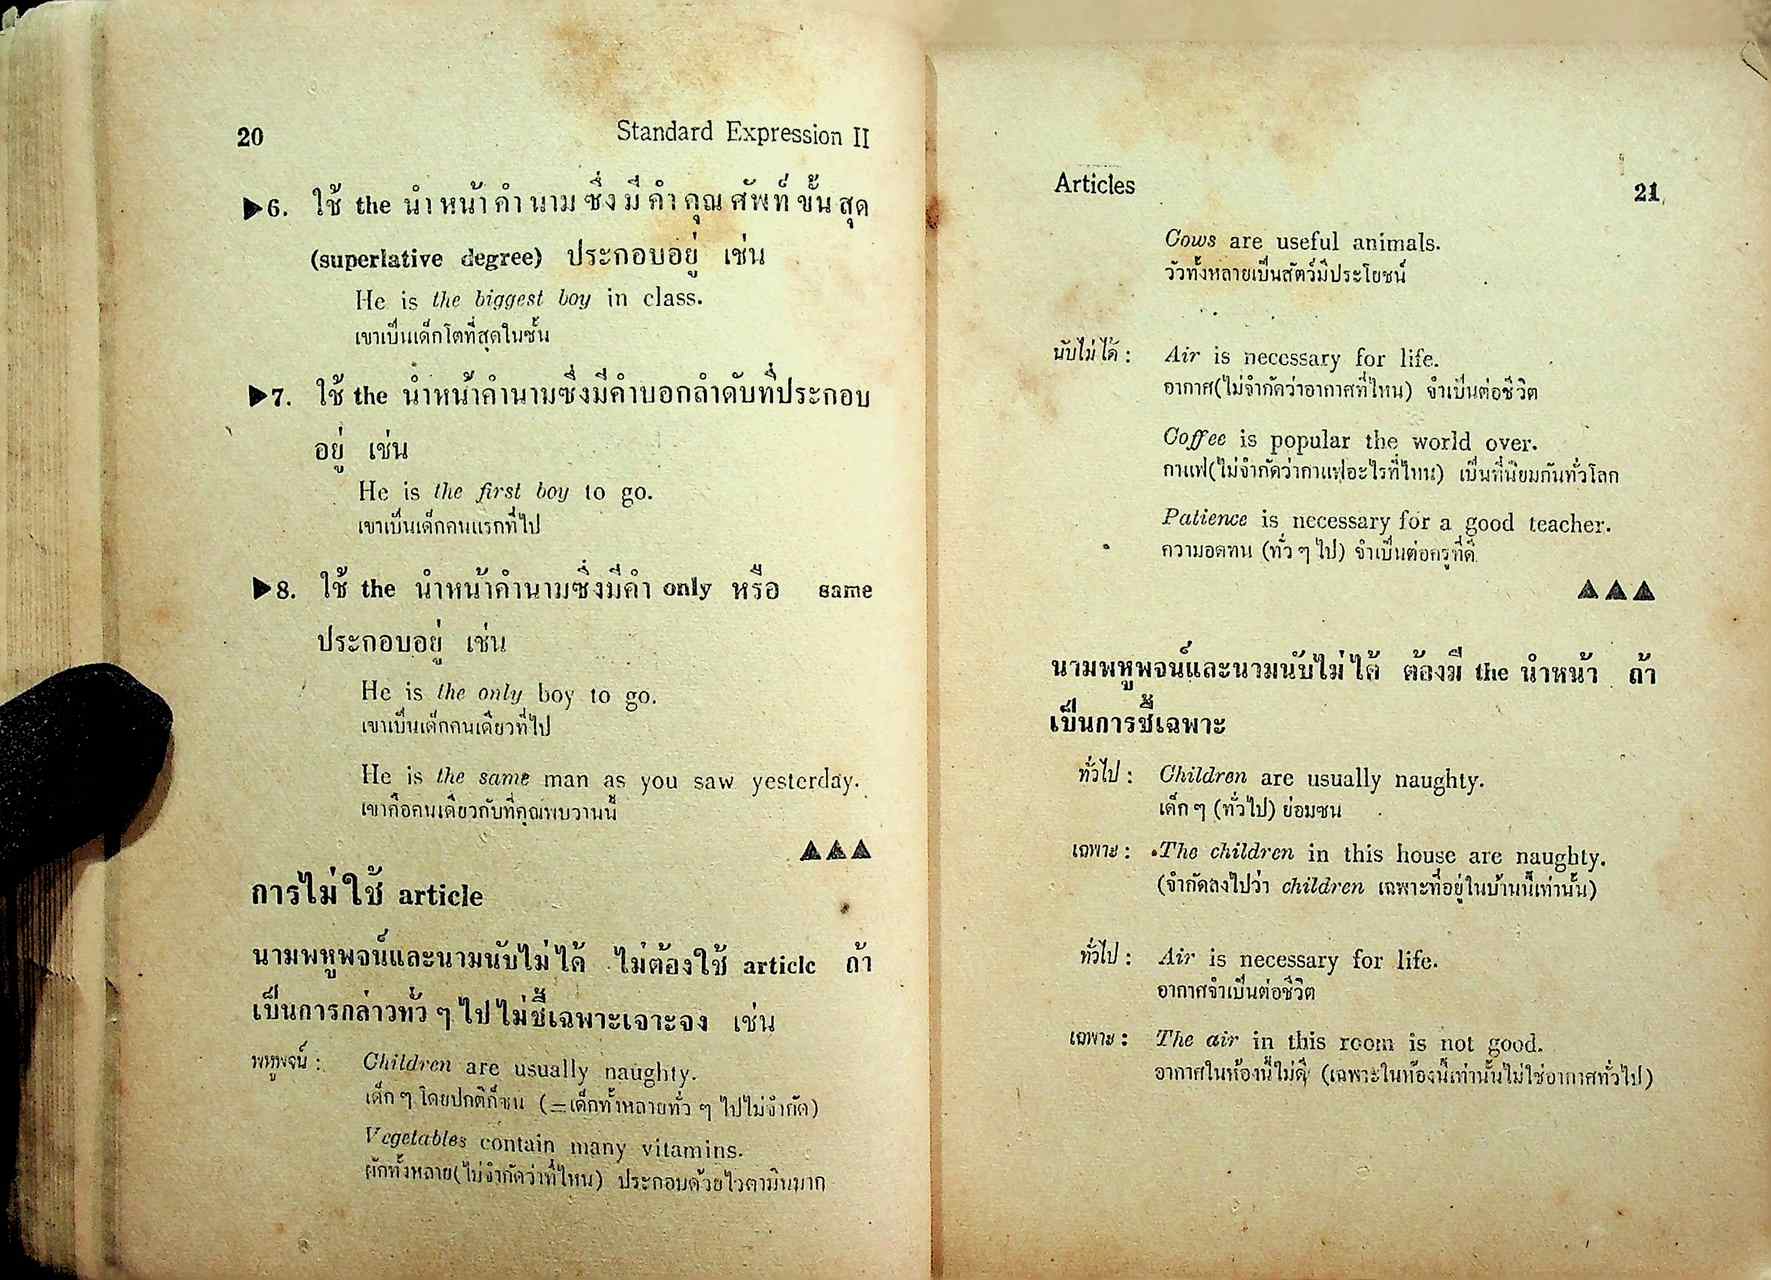 20 Standard Expression II
▶6. ใช้ the นำหน้าคำนามซึ่งมีคำคุณศัพท์ขั้นสุด
(superlative degree) ประกอบอยู่ เช่น
He is the biggest boy in class.
เขาเป็นเด็กโตที่สุดในชั้น
▶7. ใช้ the นำหน้าคำนามซึ่งมีคำบอกลำดับที่ประกอบ
อยู่ เช่น
He is the first boy to go.
เขาเป็นเด็กคนแรกที่ไป
▶8. ใช้ the นำหน้าคำนามซึ่งมีคำ only หรือ same
ประกอบอยู่ เช่น
He is the only boy to go.
เขาเป็นเด็กคนเดียวที่ไป
He is the same man as you saw yesterday.
เขาคือคนเดียวกับที่คุณพบวานนี้
▲▲▲
การไม่ใช้ article
นามพหูพจน์และนามนับไม่ได้ ไม่ต้องใช้ article ถ้า
เป็นการกล่าวทั่ว ๆ ไป ไม่ชี้เฉพาะเจาะจง เช่น
พหูพจน์ : Children are usually naughty.
เด็ก ๆ โดยปกติก็ซน (=เด็กทั้งหลายทั่ว ๆ ไปไม่จำกัด)
Vegetables contain many vitamins.
ผักทั้งหลาย(ไม่จำกัดว่าที่ไหน) ประกอบด้วยไวตามินมาก
Articles 21
Cows are useful animals.
วัวทั้งหลายเป็นสัตว์มีประโยชน์
นับไม่ได้ : Air is necessary for life.
อากาศ(ไม่จำกัดว่าอากาศที่ไหน) จำเป็นต่อชีวิต
Coffee is popular the world over.
กาแฟ(ไม่จำกัดว่ากาแฟอะไรที่ไหน) เป็นที่นิยมกันทั่วโลก
Patience is necessary for a good teacher.
ความอดทน (ทั่ว ๆ ไป) จำเป็นต่อครูที่ดี
▲▲▲
นามพหูพจน์และนามนับไม่ได้ ต้องมี the นำหน้า ถ้า
เป็นการชี้เฉพาะ
ทั่วไป : Children are usually naughty.
เด็ก ๆ (ทั่วไป) ย่อมซน
เฉพาะ : The children in this house are naughty.
(จำกัดลงไปว่า children เฉพาะที่อยู่ในบ้านนี้เท่านั้น)
ทั่วไป : Air is necessary for life.
อากาศจำเป็นต่อชีวิต
เฉพาะ : The air in this room is not good.
อากาศในห้องนี้ไม่ดี (เฉพาะในห้องนี้เท่านั้นไม่ใช่อากาศทั่วไป)